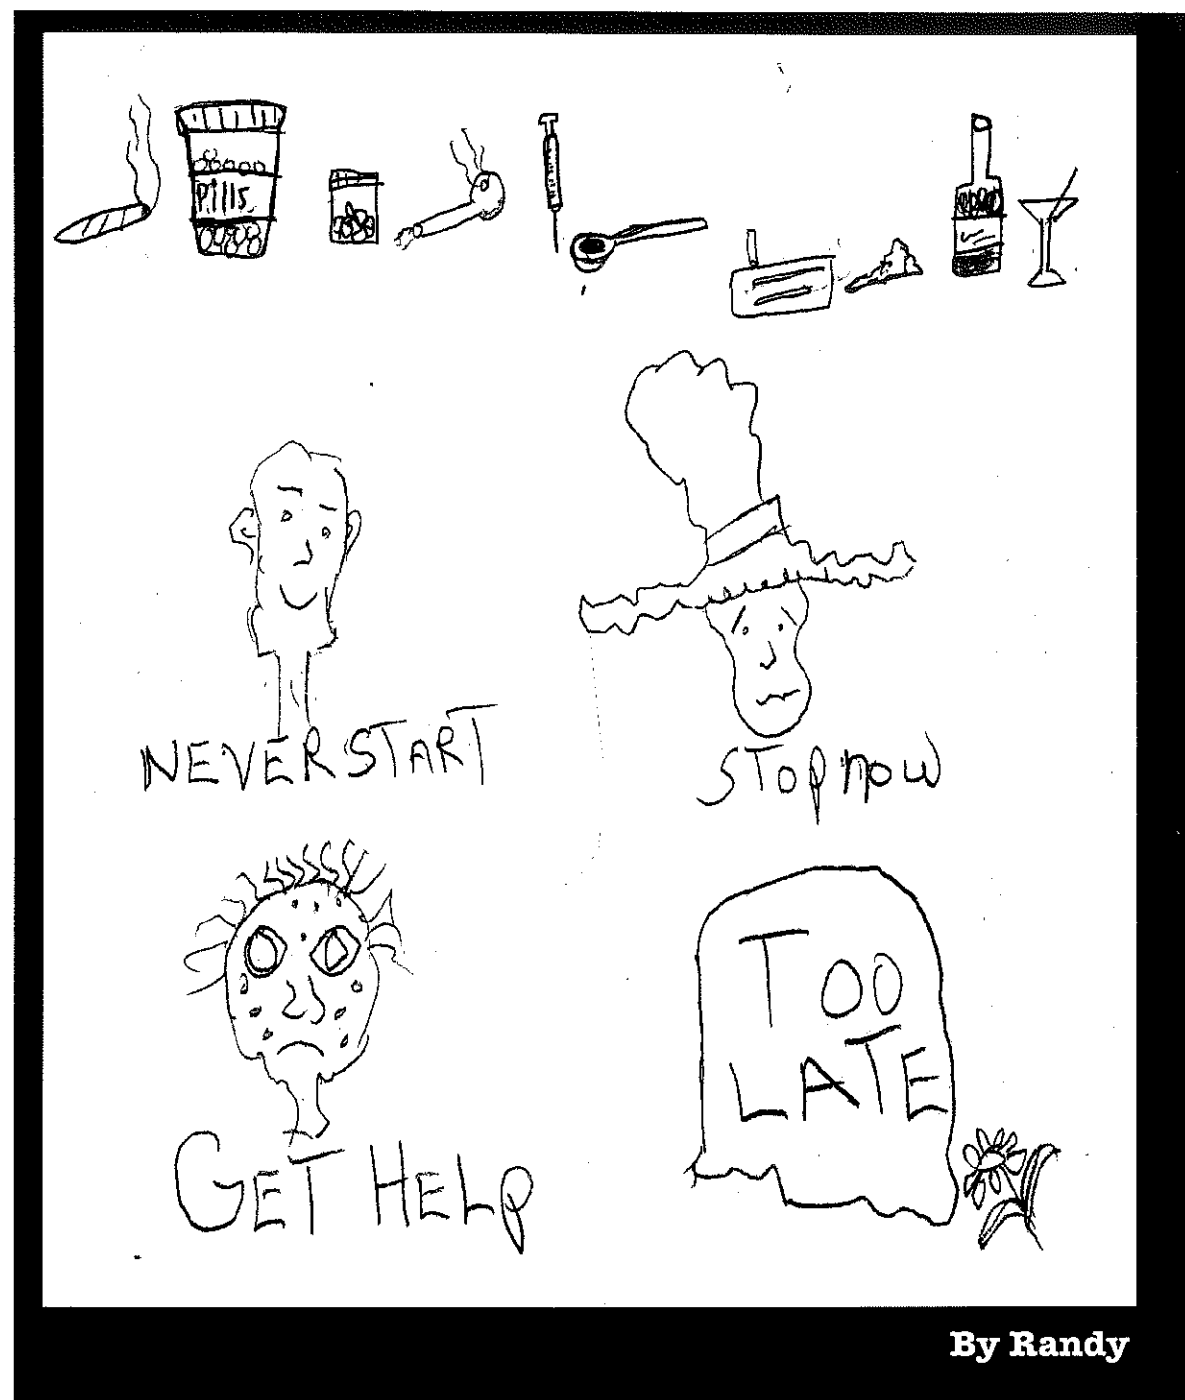 Pills
NEVER START
STOP now
GET HELP
TOO
LATE
By Randy